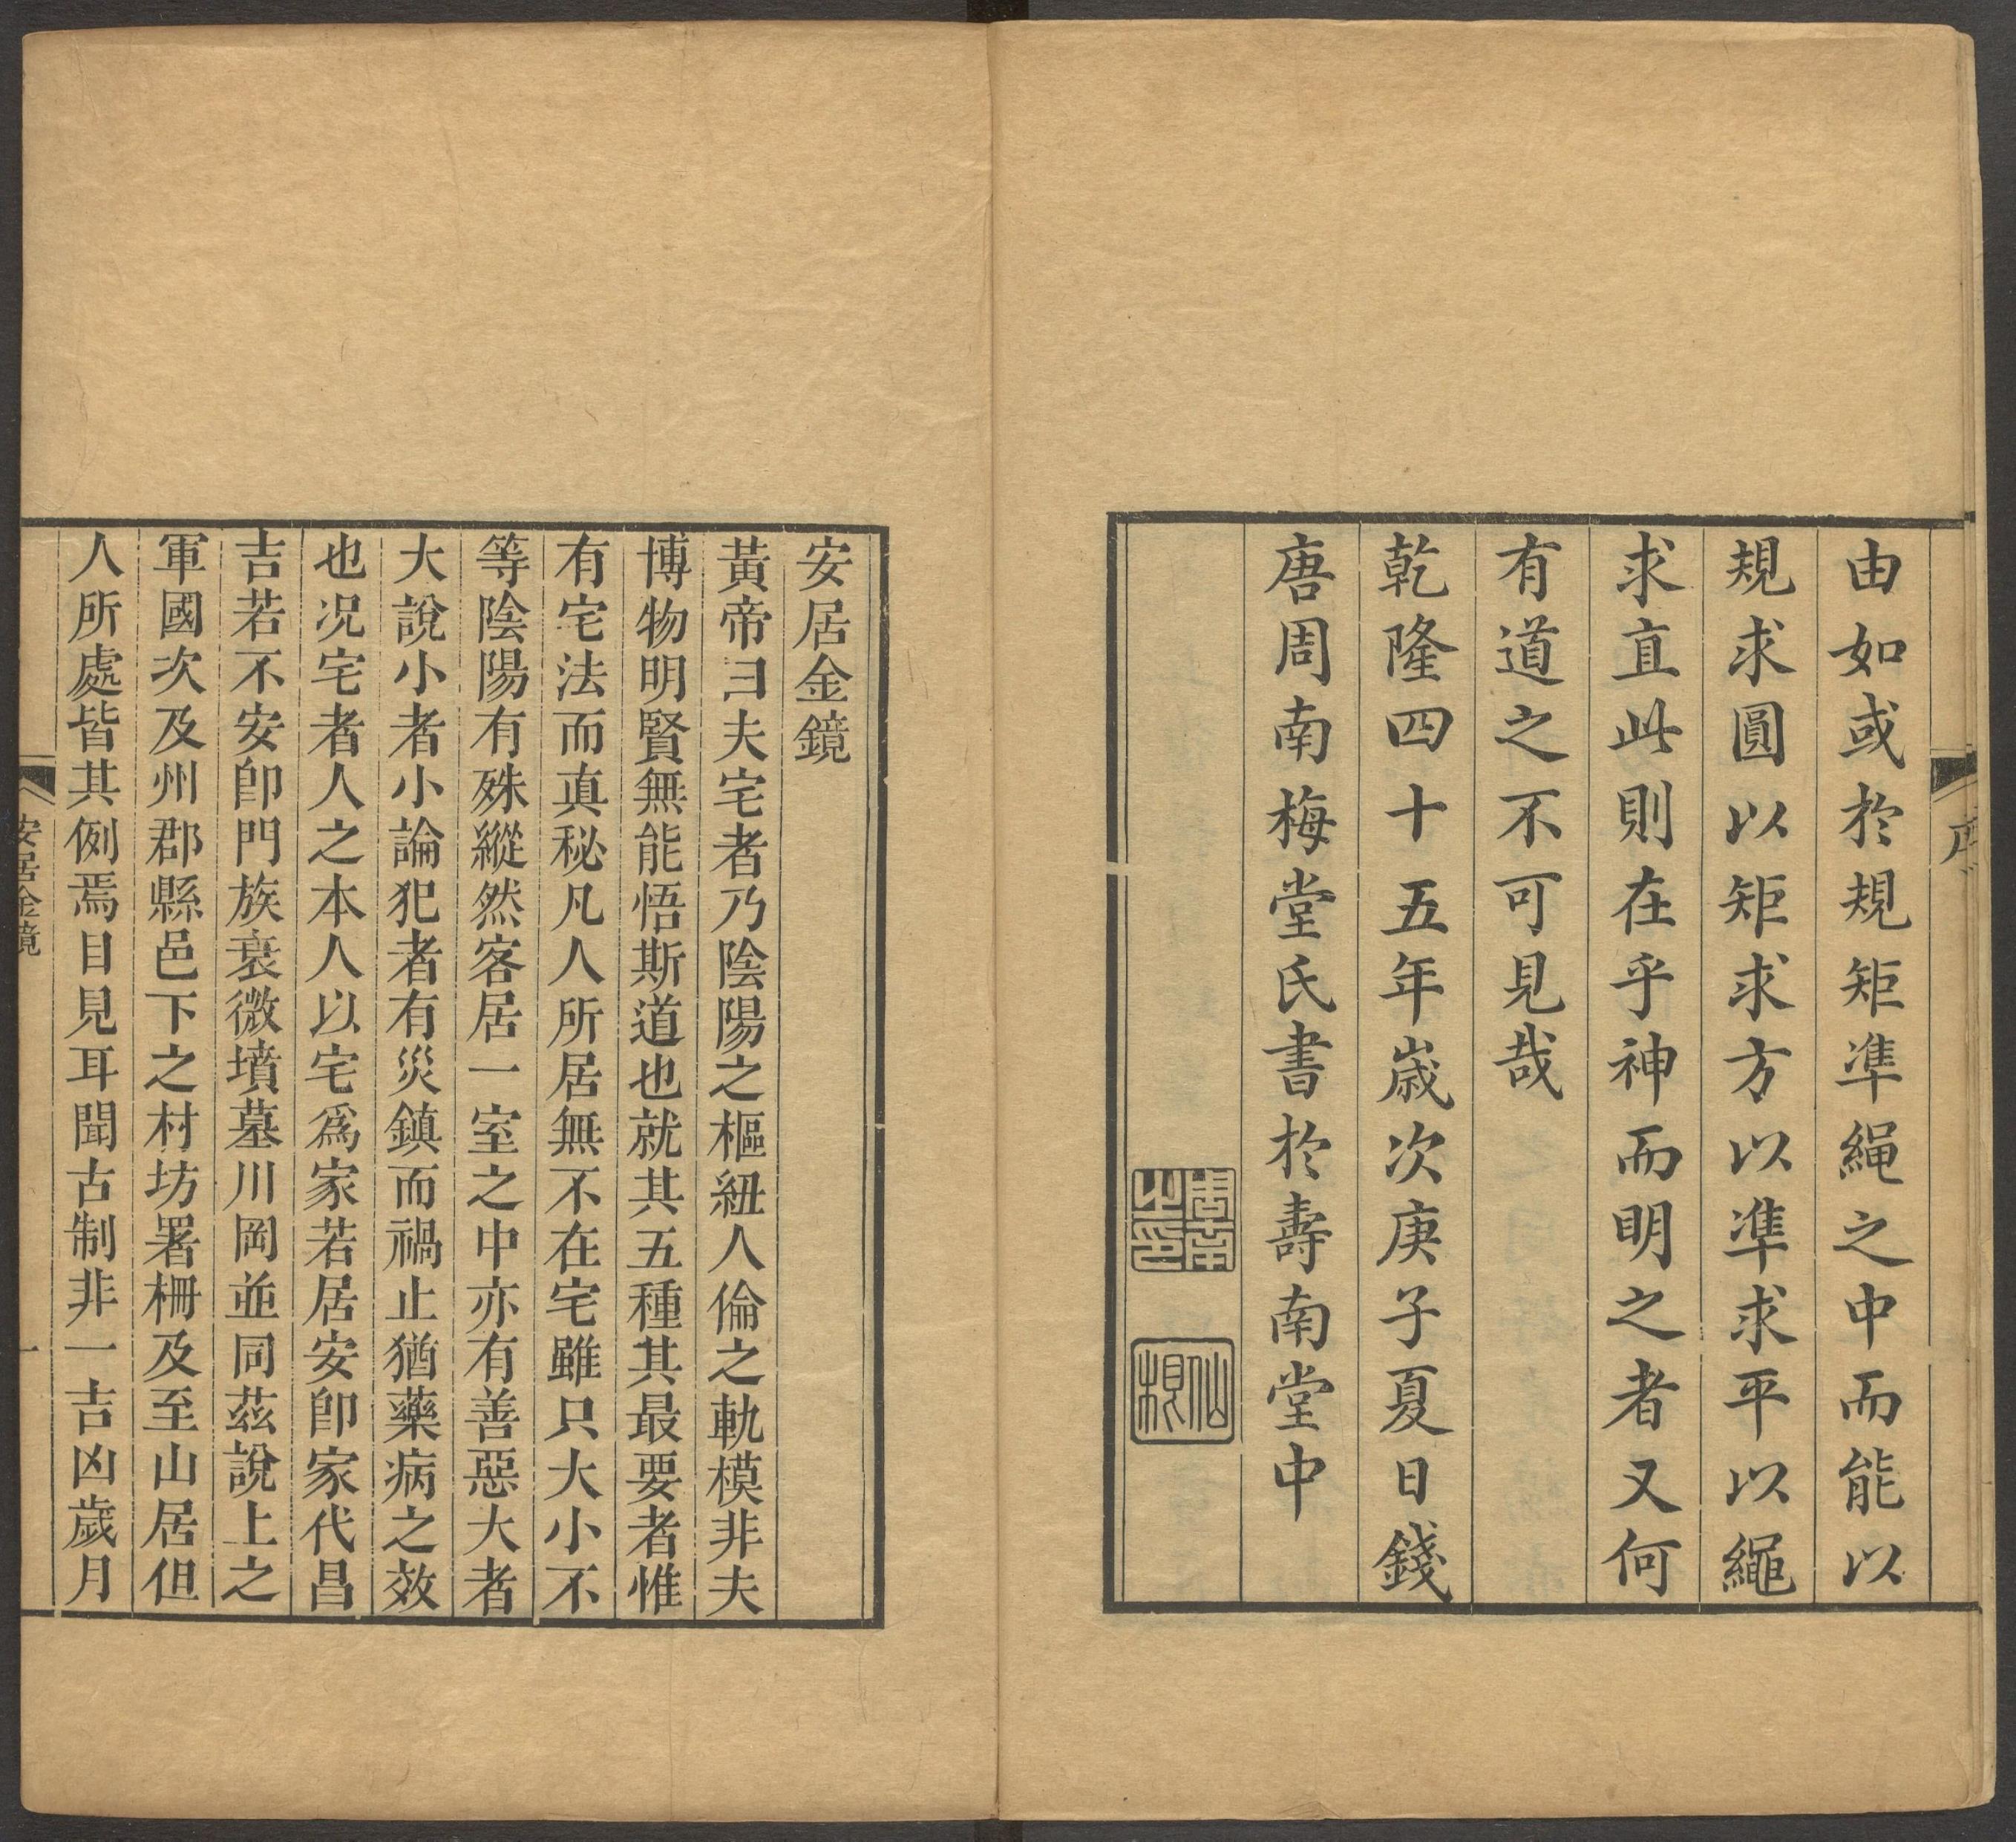 序
由如或於規矩準繩之中而能以
規求圓以矩求方以準求平以繩
求直此則在乎神而明之者又何
有道之不可見哉
乾隆四十五年歲次庚子夏日錢
唐周南梅堂氏書於壽南堂中
周南之印
仙根
安居金鏡
黃帝曰夫宅者乃陰陽之樞紐人倫之軌模非夫
博物明賢無能悟斯道也就其五種其最要者惟
有宅法而真秘凡人所居無不在宅雖只大小不
等陰陽有殊縱然客居一室之中亦有善惡大者
大說小者小論犯者有災鎮而禍止猶藥病之效
也况宅者人之本人以宅爲家若居安卽家代昌
吉若不安卽門族衰微墳墓川岡並同茲說上之
軍國次及州郡縣邑下之村坊署柵及至山居但
人所處皆其例焉目見耳聞古制非一吉凶歲月
安居金鏡
一